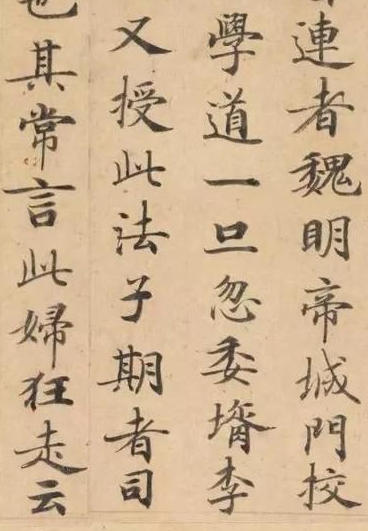 連者魏明帝城門校
學道一旦忽委壻李
又授此法子期者司
也其常言此婦狂走云